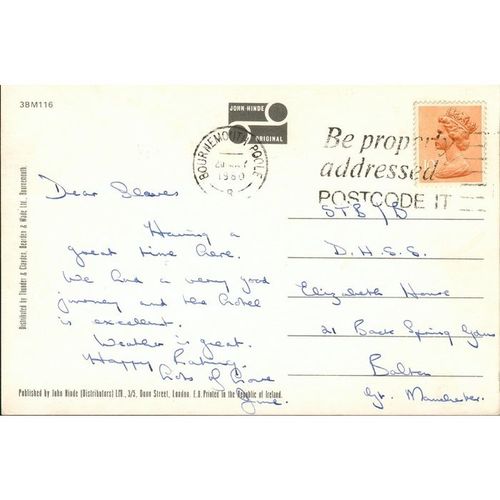 3BM116
JOHN HINDE
ORIGINAL
BOURNEMOUTH POOLE
1980
Be properly
addressed
POSTCODE IT
Dear Slaves
Having a
great time here.
We had a very good
journey and the hotel
is excellent.
Weather is great.
Happy
Lots of Love
June.
STB/B
D.H.S.S.
Elizabeth House
21 Back Spring Gdns
Bolton
Gt. Manchester.
Distributed by Thunder & Clayden, Bearden & Wade Ltd., Bournemouth.
Published by John Hinde (Distributors) Ltd., 3/5, Dunn Street, London. E.8. Printed in the Republic of Ireland.